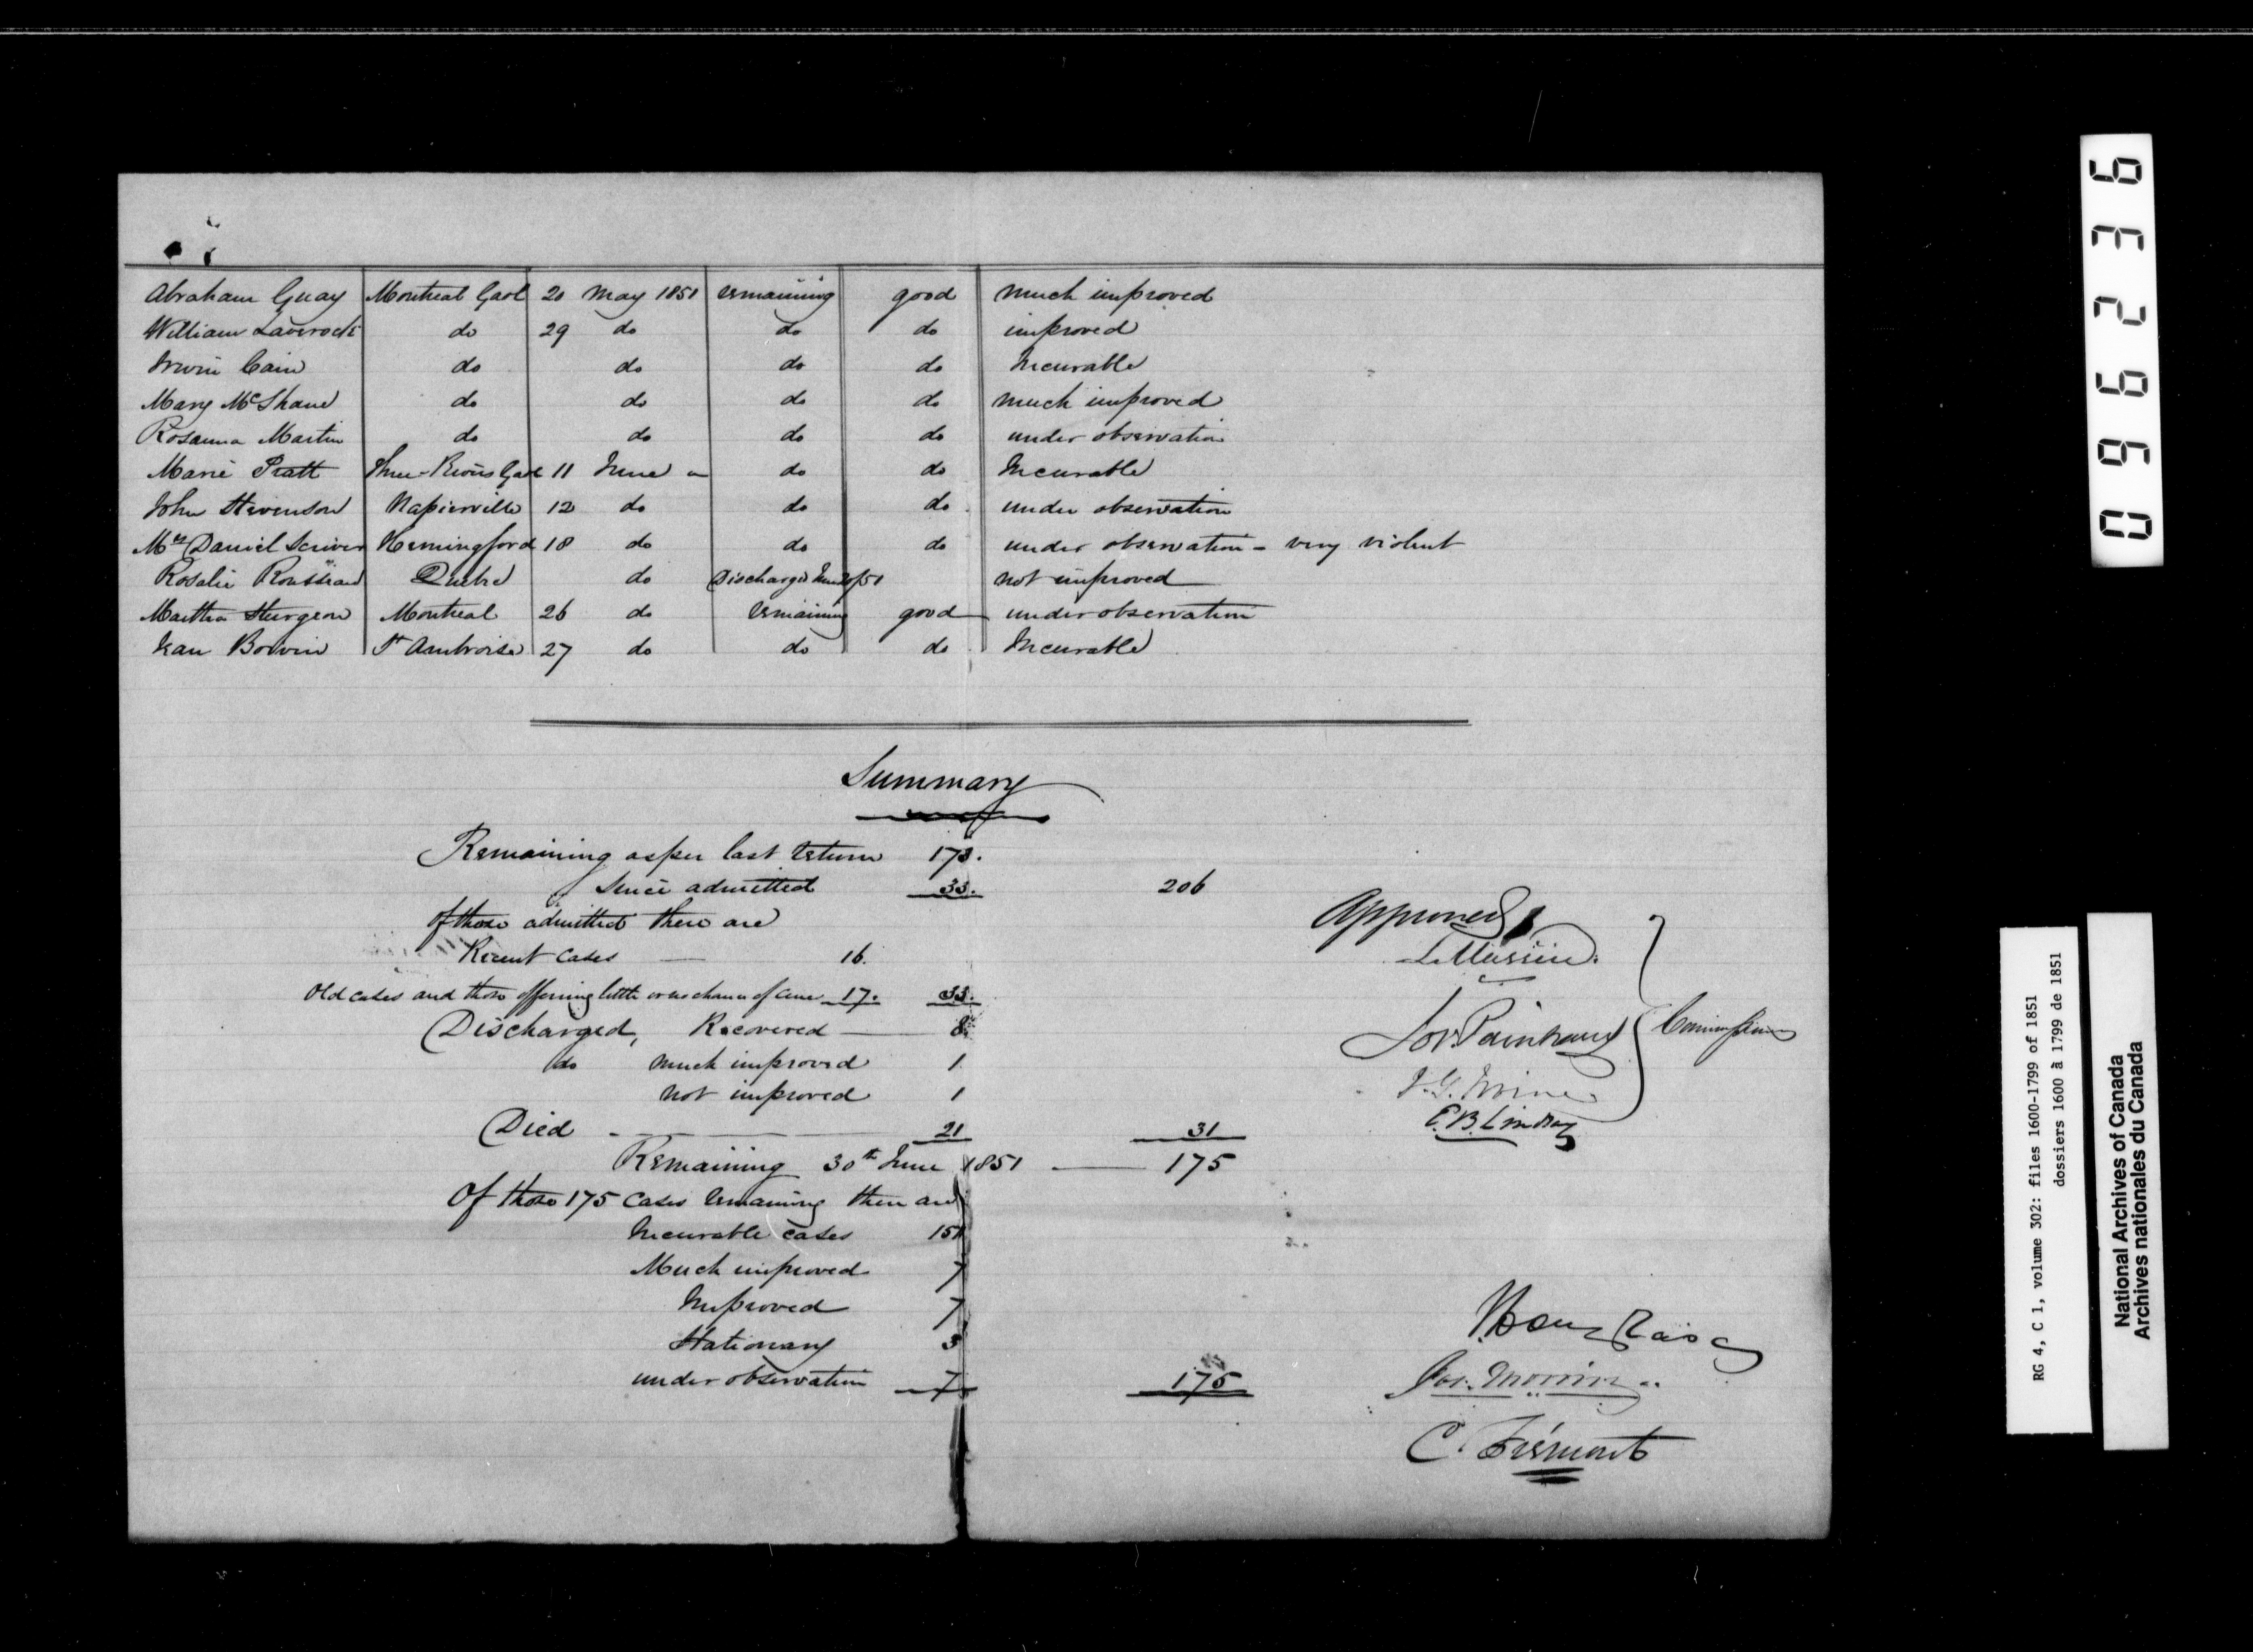 Abraham Guay Montreal Gaol 20 May 1851 remaining good much improved
William Laverock do 29 do do do improved
Irwin Cain do do do do Incurable
Mary McShane do do do do much improved
Rosanna Martin do do do do under observation
Marie Pratt Three-Rivers Gaol 11 June do do Incurable
John Stevenson Napierville 12 do do do under observation
Mrs Daniel Scriver Hemingford 18 do do do under observation - very violent
Rosalie Rousseau Quebec do Discharged June 51 not improved
Martha Sturgeon Montreal 26 do remaining good under observation
Jean Boivin St Ambroise 27 do do do Incurable
Summary
Remaining as per last return 173.
Since admitted 33. 206
Of those admitted there are
Recent cases 16.
Old cases and those offering little or no chance of cure 17. 33.
Discharged, Recovered 8
do much improved 1
not improved 1
Died 21 31
Remaining 30th June 1851 175
Of those 175 cases remaining there are
Incurable cases 151
Much improved 7
Improved 7
Stationary 3
under observation 7 175
Approved
Jos. Painchaud
J. G. Irvine
E. B. Lindsay
Commissioners
Jos. Morrin
C. Frémont
096236
RG 4, C 1, volume 302: files 1600-1799 of 1851
dossiers 1600 à 1799 de 1851
National Archives of Canada
Archives nationales du Canada